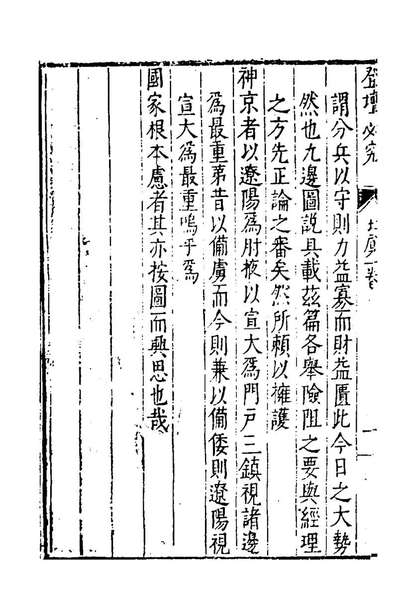 登壇必究
謂分兵以守則力益寡而財益匱此今日之大勢
然也九邊圖説具載茲篇各舉險阻之要與經理
之方先正論之審矣然所賴以擁護
神京者以遼陽爲肘掖以宣大爲門戸三鎮視諸邊
爲最重第昔以備虜而今則兼以備倭則遼陽視
宣大爲最重嗚乎爲
國家根本慮者其亦按圖而興思也哉